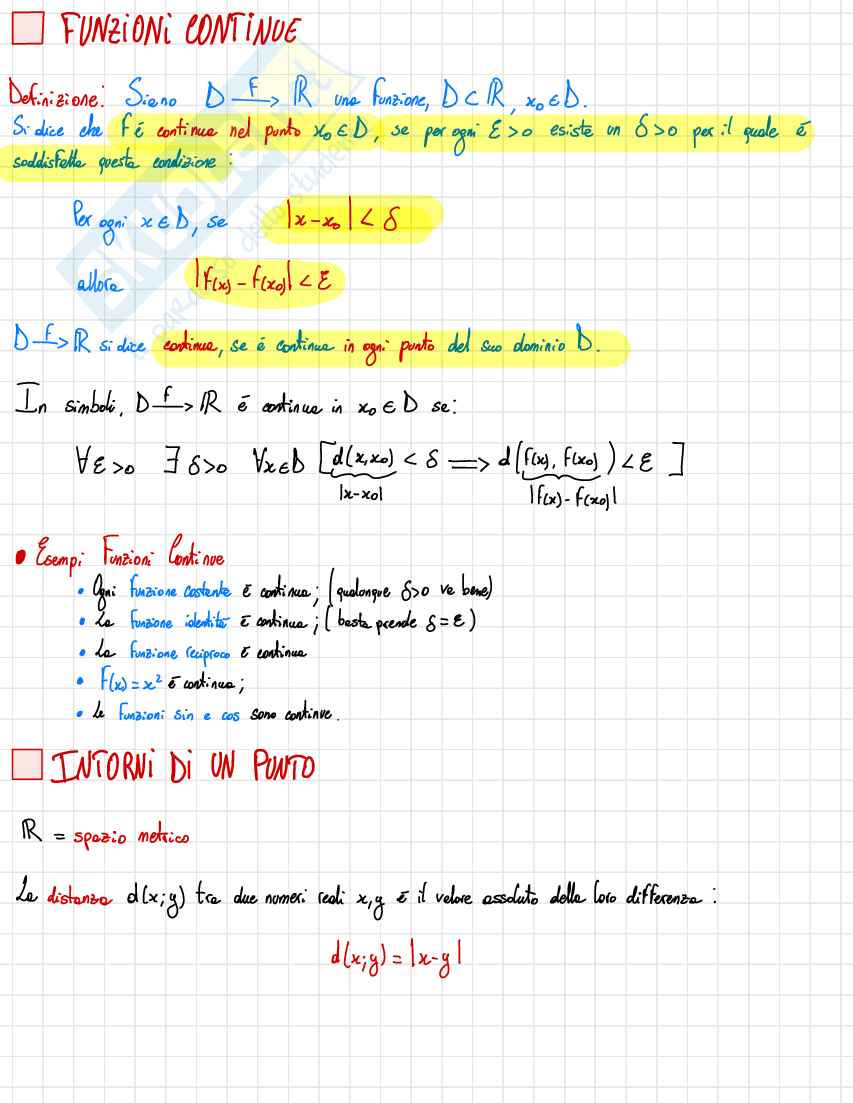 FUNZIONI CONTINUE
Definizione: Siano D —f→ ℝ una funzione, D ⊂ ℝ, x₀ ∈ D.
Si dice che f é continua nel punto x₀ ∈ D, se per ogni ε > 0 esiste un δ > 0 per il quale é
soddisfatta questa condizione:
Per ogni x ∈ D, se |x - x₀| < δ
allora |f(x) - f(x₀)| < ε
D —f→ ℝ si dice continua, se é continua in ogni punto del suo dominio D.
In simboli, D —f→ ℝ é continua in x₀ ∈ D se:
∀ε>0 ∃ δ>0 ∀x∈D [d(x,x₀) < δ ⟹ d(f(x), f(x₀)) < ε ]
|x-x₀| |f(x)-f(x₀)|
• Esempi Funzioni Continue
• Ogni funzione costante é continua; (qualonque δ>0 va bene)
• La funzione identitá é continua; (basta prende δ = ε)
• La funzione reciproco é continua
• f(x) = x² é continua;
• Le funzioni sin e cos sono continue.
INTORNI DI UN PUNTO
ℝ = spazio metrico
La distanza d(x;y) tra due numeri reali x,y é il valore assoluto della loro differenza:
d(x;y) = |x-y|